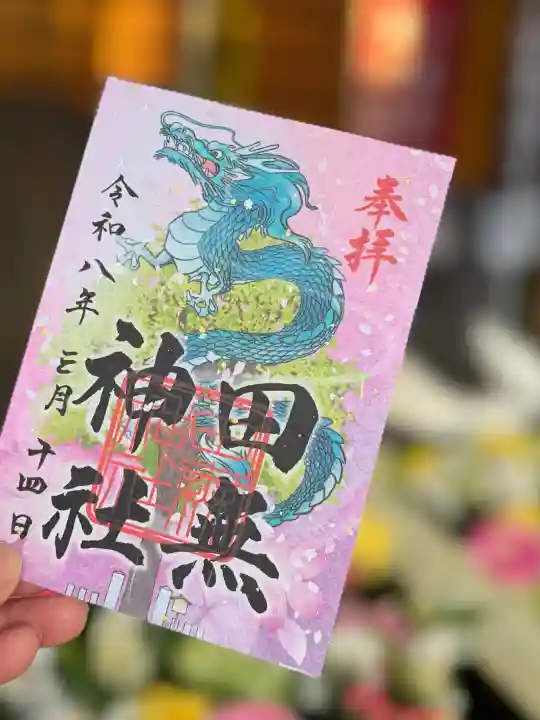 奉拝
田無
神社
令和八年 三月 十四日